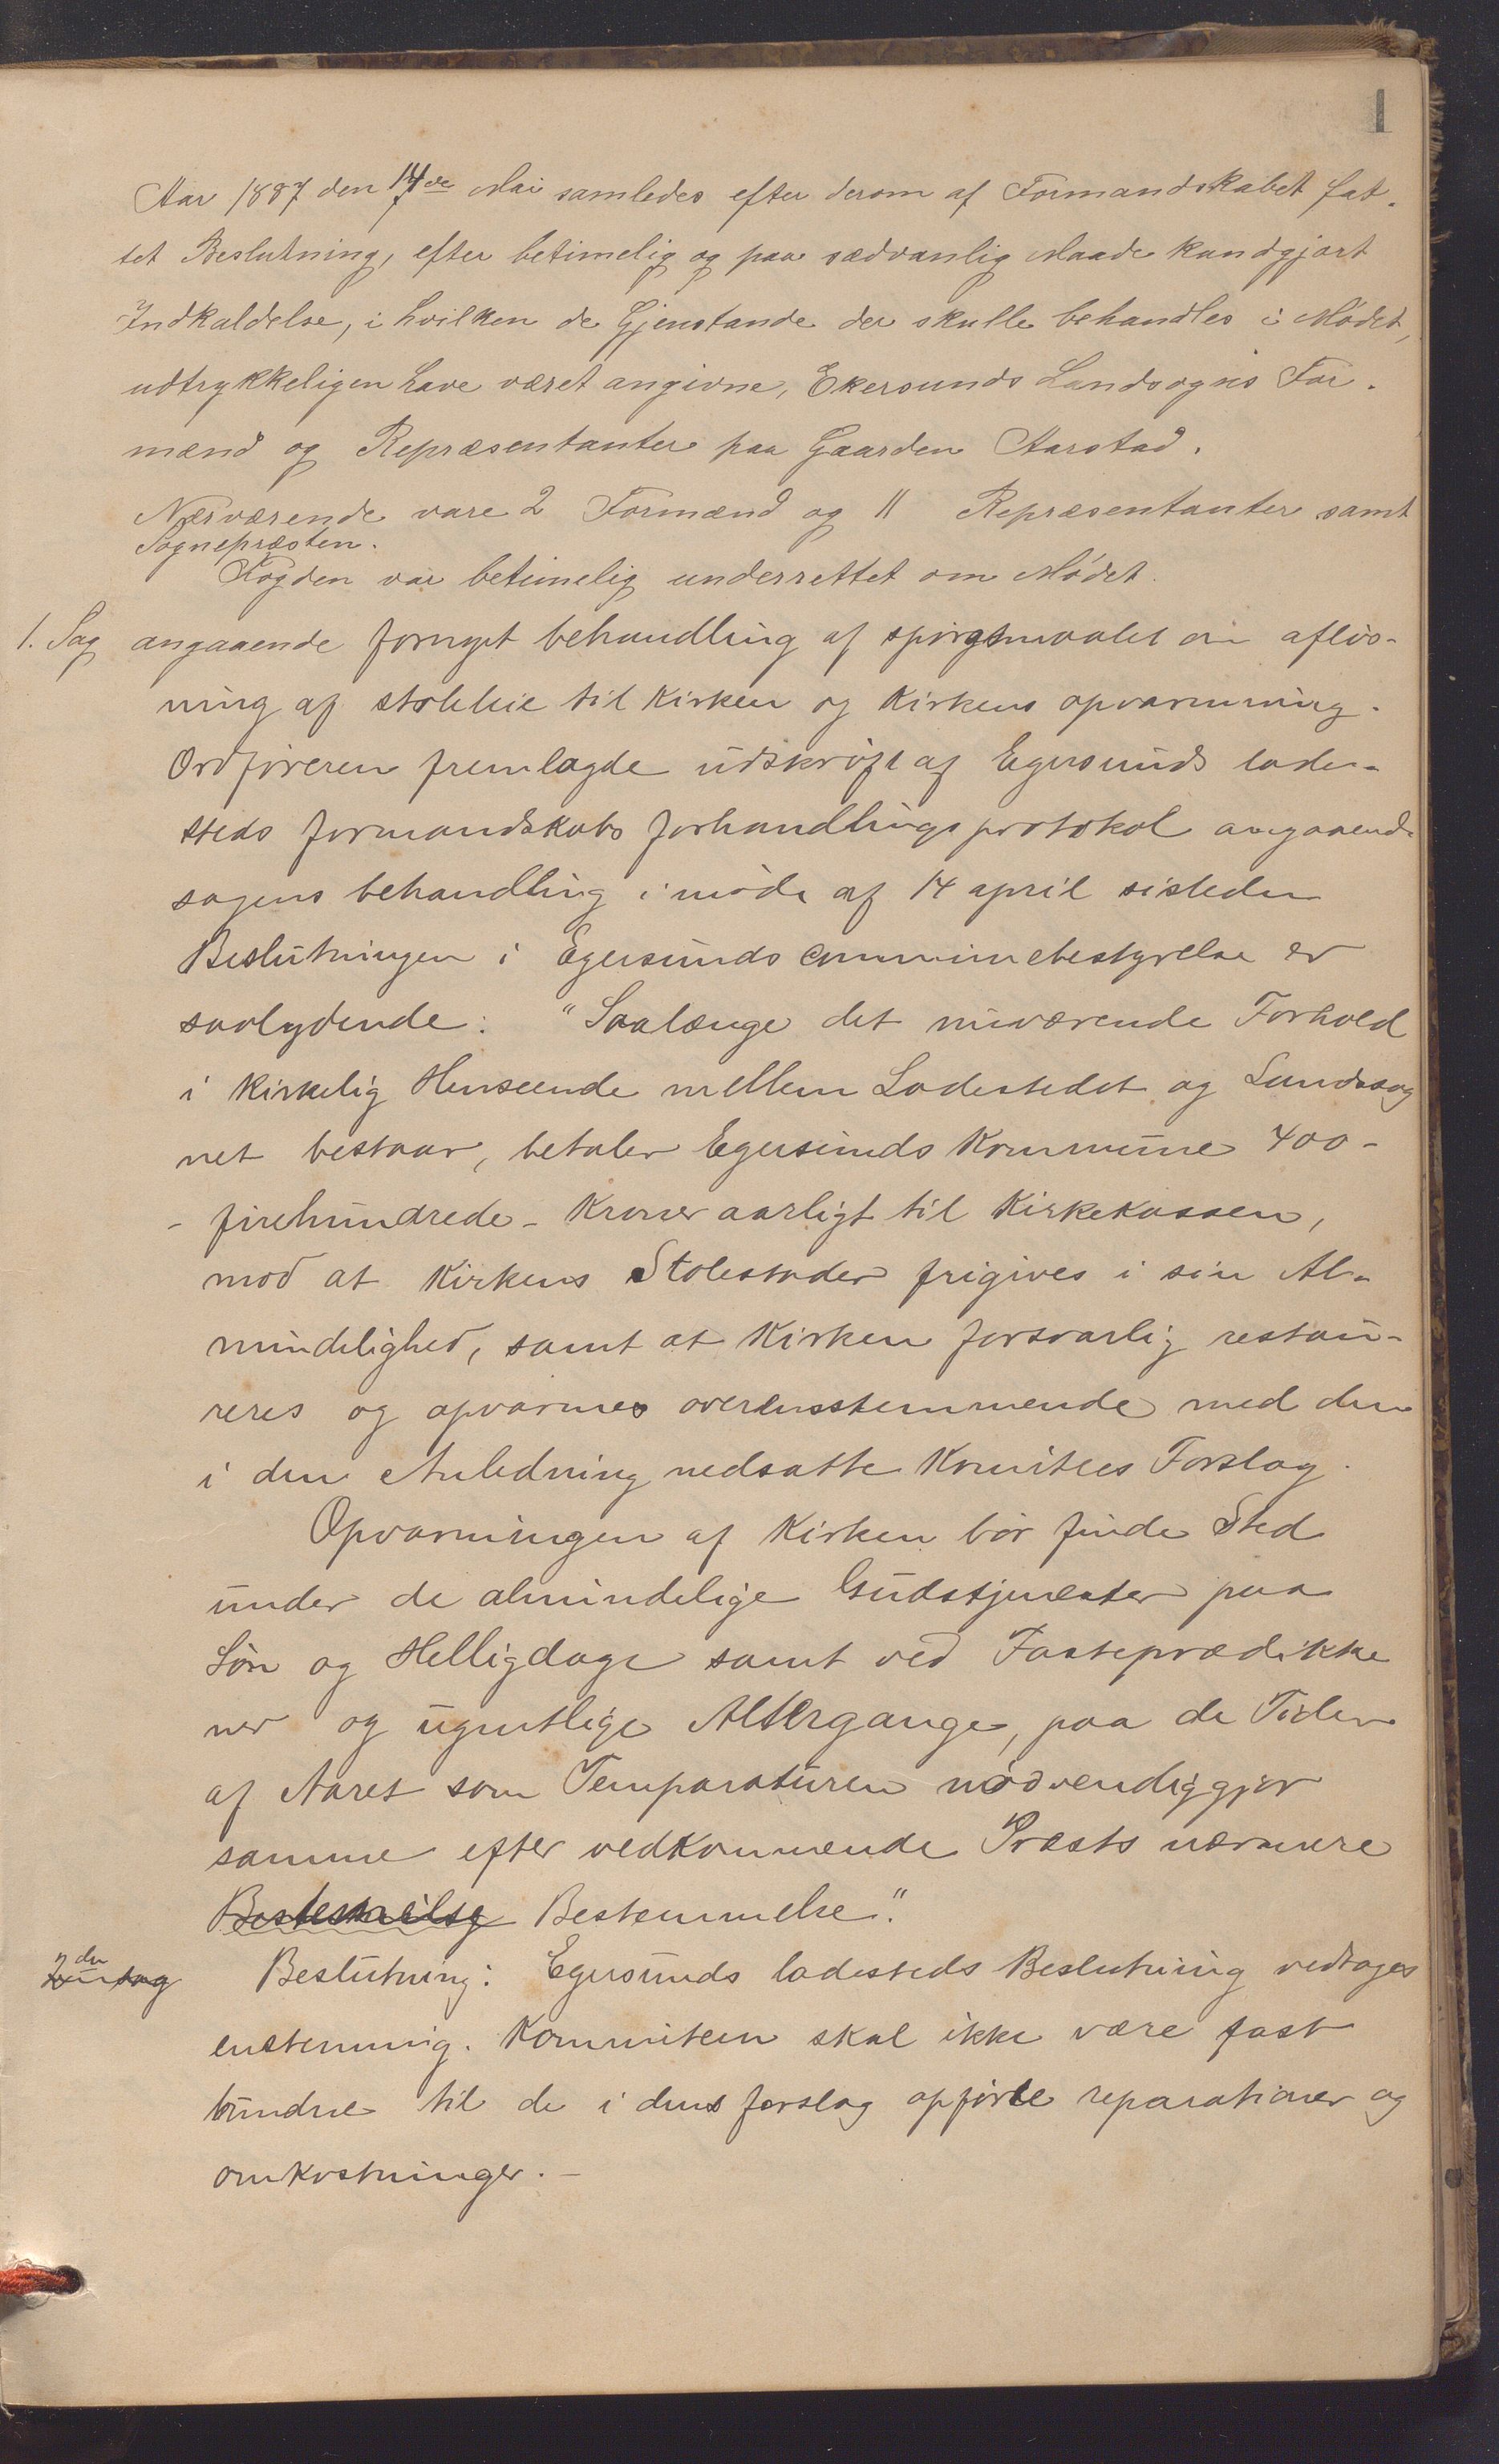 1
Aar 1887 den 14de Mai samledes efter derom af Formandskabet fat-
tet Beslutning, efter betimelig og paa sædvanlig Maade kundgjort
Indkaldelse, i hvilken de Gjenstande der skulle behandles i Mødet,
udtrykkeligen have været angivne, Ekersunds Landsogns For-
mænd og Repræsentanter paa Gaarden Aarstad.
Nærværende vare 2 Formænd og 11 Repræsentanter samt
Sognepræsten.
Fogden var betimelig underrettet om Mødet.
1. Sag angaaende fornyet behandling af spørgsmaalet om afløs-
ning af stolleie til Kirken og Kirkens opvarmning.
Ordføreren fremlagde udskrift af Egersunds lade-
steds formandskabs forhandlingsprotokol angaaende
sagens behandling i møde af 14 april sisteden
Beslutningen i Egersunds communebestyrelse er
saalydende: "Saalænge det nuværende Forhold
i kirkelig Henseende mellem Ladestedet og Landssog
net bestaar, betaler Egersunds Kommune 400 -
- firehundrede - Kroner aarligt til Kirkekassen,
mod at Kirkens Stolestader frigives i sin Al-
mindelighed, samt at Kirken forsvarlig restau-
reres og opvarmes overensstemmende med den
i den Anledning nedsatte Komitees Forslag.
Opvarmingen af Kirken bør finde Sted
under de almindelige Gudstjenester paa
Søn og Helligdage samt ved Fasteprædikke
ner og ugentlige Altergange, paa de Tider
af Aaret som Temparaturen nødvendiggjør
samme efter vedkommende Præsts nærmere
Bestemelse Bestemmelse."
2den sag Beslutning: Egersunds ladesteds Beslutning vedtages
enstemmig. Kommiteen skal ikke være fast
bundne til de i dens forslag opførte reparationer og
omkostninger. -